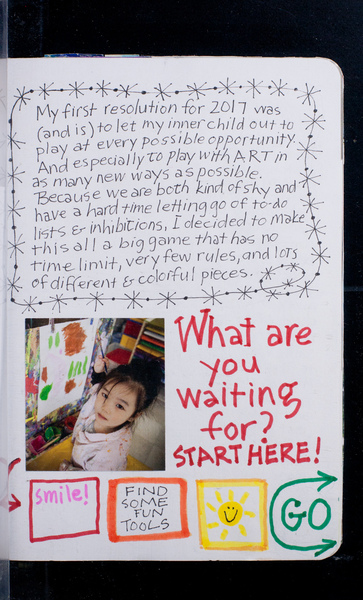 My first resolution for 2017 was
(and is) to let my inner child out to
play at every possible opportunity.
And especially to play with ART in
as many new ways as possible.
Because we are both kind of shy and
have a hard time letting go of to-do
lists & inhibitions, I decided to make
this all a big game that has no
time limit, very few rules, and lots
of different & colorful pieces.
What are
you
waiting
for?
START HERE!
smile!
FIND
SOME
FUN
TOOLS
GO